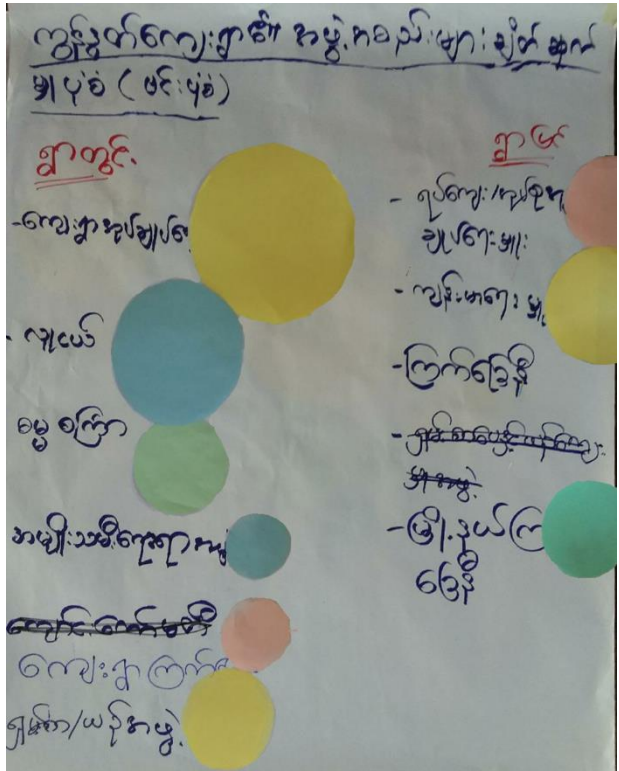 ကျွန်းညွတ်ကျေးရွာ၏ အဖွဲ့အစည်းများ ချိတ်ဆက်
မှုပုံစံ ( ဗင်းပုံစံ )
ရွာတွင်း
-ကျေးရွာအုပ်ချုပ်ရေး
- လူငယ်
ဓမ္မ စကြာ
အမျိုးသမီးရေးရာအဖွဲ့
ကျေးရွာ ကြက်
ရှမ်းစာ/ယဉ်အဖွဲ့
ရွာပြင်
- ရပ်ကျေး/အုပ်စုအုပ်
ချုပ်ရေးမှူး
- ကျန်းမာရေး မှူး
-ကြက်ခြေနီ
-မြို့နယ်ကြ
ခြေနီ